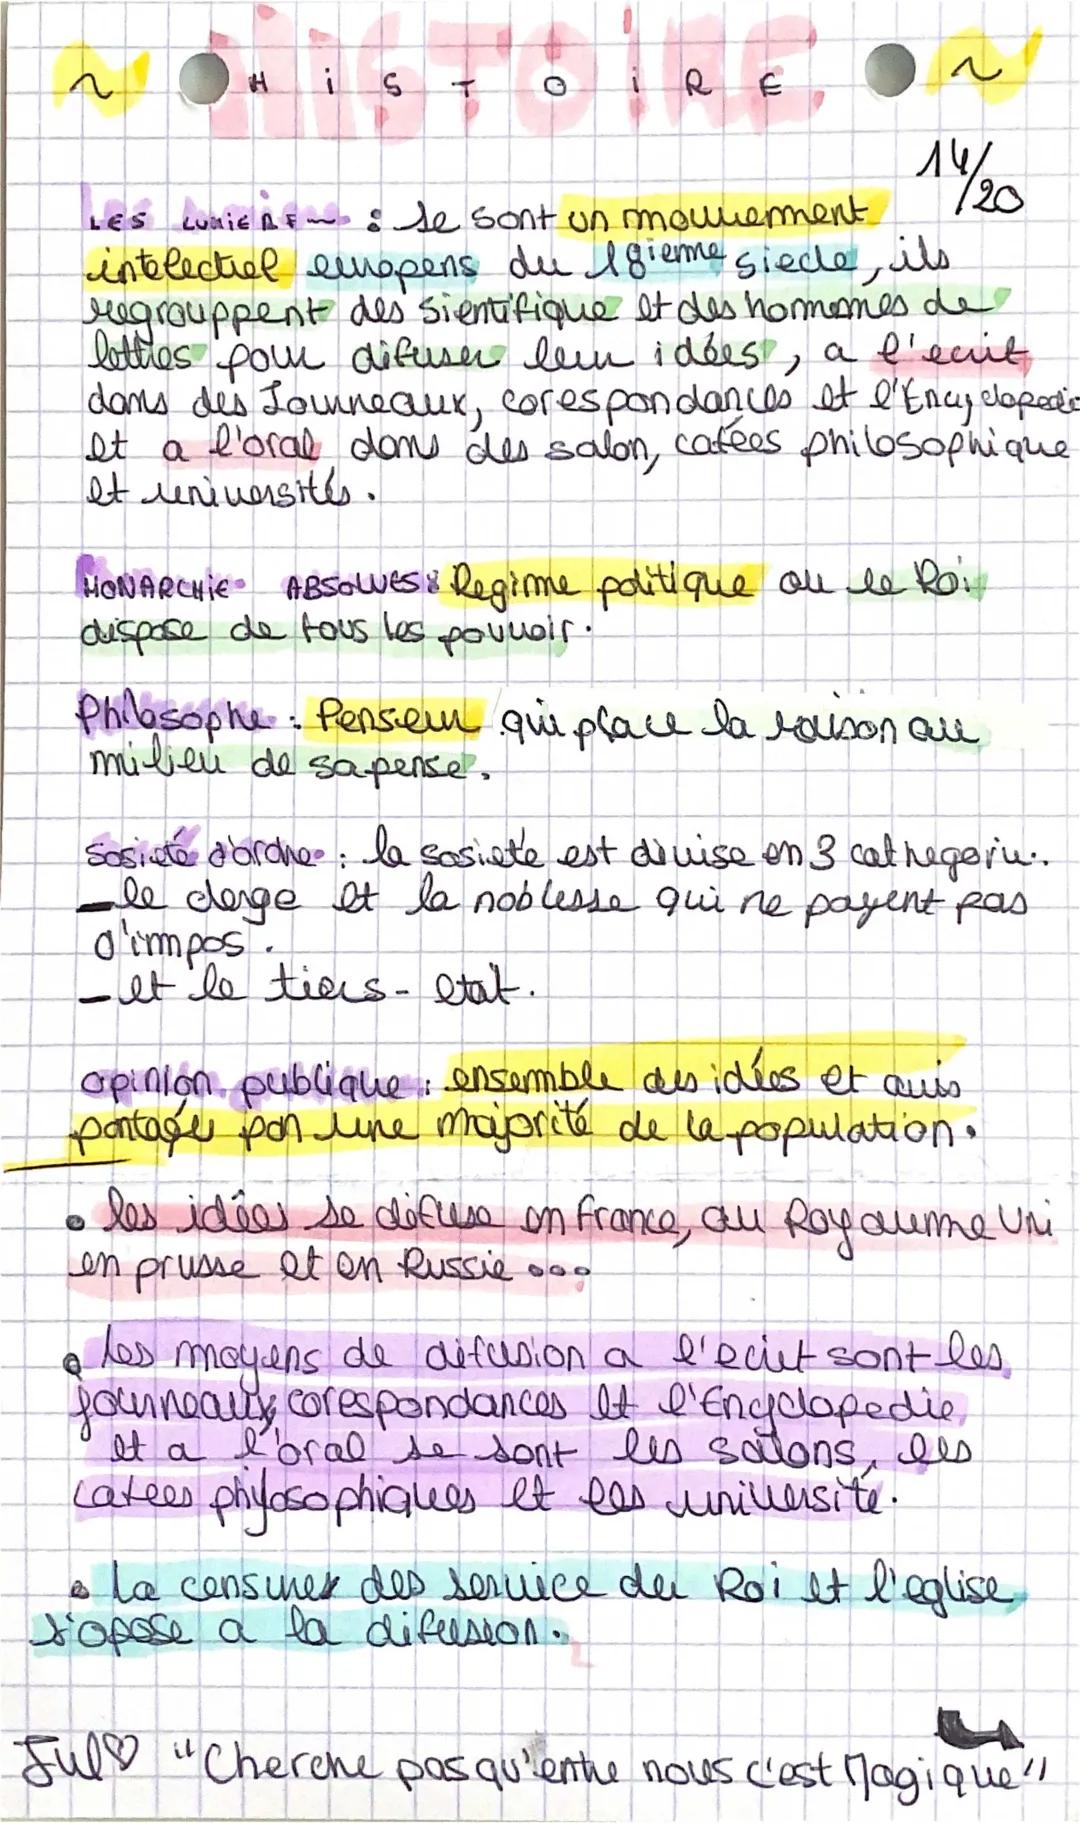 ~ HiSTOiRE ~
14/20
LES LUMIERE~ : se sont un mouvement
intelectuel europens du 18ieme siecle, ils
regrouppent des sientifique et des homemes de
lettres pour difuser leur idées, a l'ecrit
dans des Journeaux, corespondances et l'Encyclopedie
et a l'oral dans des salon, cafées philosophique
et universités.
MONARCHiE ABSOLUES : Regime politique ou le Roi
dispose de tous les pouvoir.
Philosophe : Penseur qui place la raison au
milieu de sa pense.
Sosieté d'ordre : la sosiete est divise en 3 cathegorie.
- le clerge et la noblesse qui ne payent pas
d'impos.
- et le tiers-etat.
opinion publique : ensemble des idées et avis
partagés par une majorité de la population.
• les idées se difuse en france, au Royaume Uni
en prusse et en Russie ...
• les moyens de difusion a l'ecrit sont les
journeaux, corespondances et l'Encyclopedie
et a l'oral se sont les salons, les
cafees phylosophiques et les université.
• La censure des service du Roi et l'eglise
s'opose a la difusion.
Jul♡ "Cherche pas qu'entre nous c'est Magique"